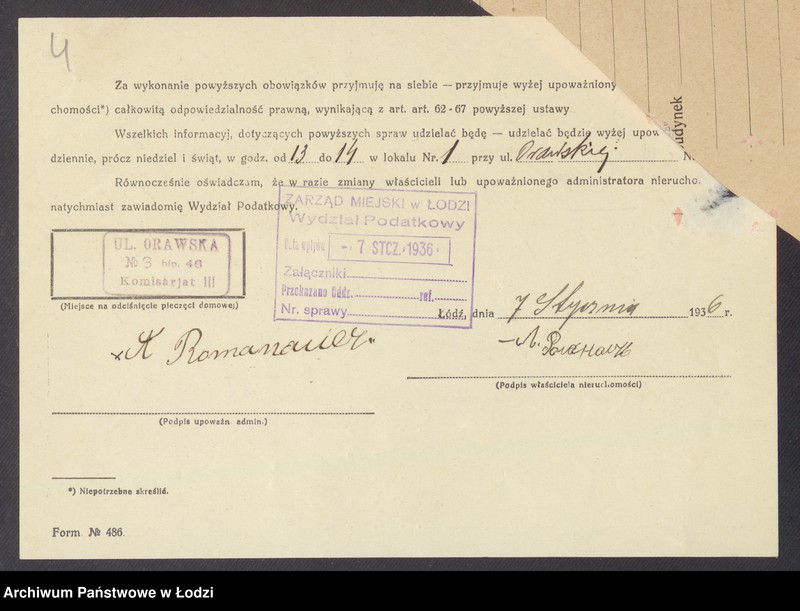 4
Za wykonanie powyższych obowiązków przyjmuję na siebie — przyjmuje wyżej upoważniony
chomości*) całkowitą odpowiedzialność prawną, wynikającą z art. art. 62-67 powyższej ustawy
Wszelkich informacyj, dotyczących powyższych spraw udzielać będę — udzielać będzie wyżej
dziennie, prócz niedziel i świąt, w godz. od 13 do 14 w lokalu Nr. 1 przy ul. Orawskiej
Równocześnie oświadczam, że w razie zmiany właścicieli lub upoważnionego administratora
natychmiast zawiadomię Wydział Podatkowy.
UL. ORAWSKA
№ 3 hip. 46
Komisarjat III
(Miejsce na odciśnięcie pieczęci domowej)
ZARZĄD MIEJSKI w ŁODZI
Wydział Podatkowy
Data wpływu 7 STCZ. 1936
Załączniki
Przekazano Oddz. ref.
Nr. sprawy
Łódź, dnia 7 Stycznia 1936 r.
(Podpis właściciela nieruchomości)
(Podpis upoważn. admin.)
*) Niepotrzebne skreślić.
Form. № 486.
Archiwum Państwowe w Łodzi